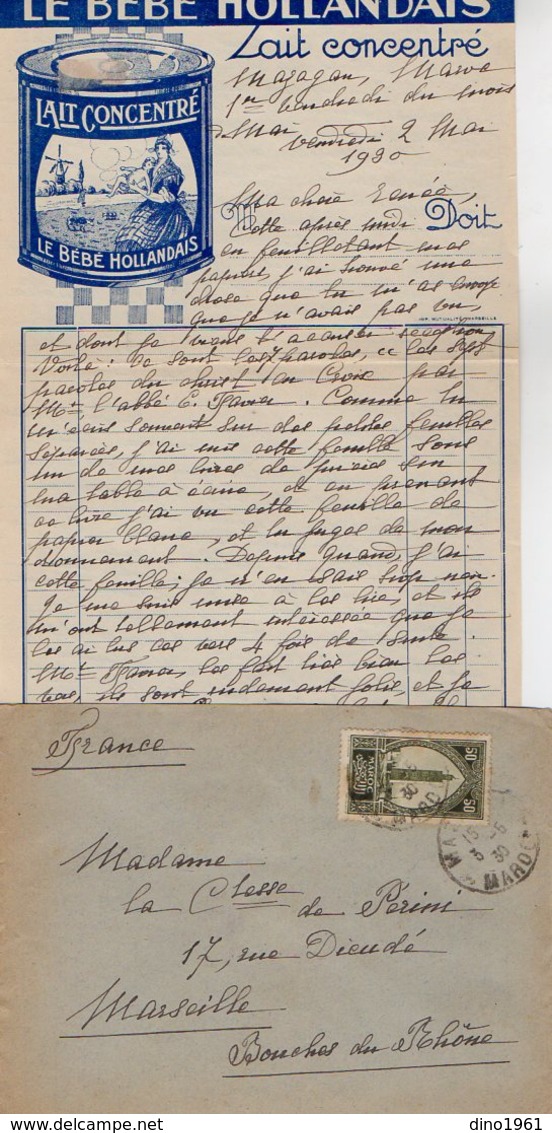 LE BÉBÉ HOLLANDAIS
Lait concentré
LAIT CONCENTRÉ
LE BÉBÉ HOLLANDAIS
Mazagan, Maroc
1er Vendredi du mois
Mai Vendredi 2 Mai
1930
Ma chère Renée,
M Doit
Cette après midi
en feuilletant mes
papiers, j'ai trouvé une
chose que tu m'as envoyé
que je n'avais pas vu,
IMP. MUTUALITÉ - MARSEILLE
et dont je viens t'accuser réception
Voilà. Ce sont les 7 paroles, les sept
paroles du christ en Croix par
Mr l'abbé E. Comme tu
m'écris souvent sur des petites feuilles
séparées, j'ai mis cette feuille sous
un de mes livres de prières sur
ma table à écrire, et en prenant
ce livre j'ai vu cette feuille de
papier blanc, et tu juges de mon
étonnement. Depuis quand j'ai
cette feuille; je n'en sais trop rien.
Je me suis mise à les lire, et ils
m'ont tellement intéressée que je
les ai lus ces vers 4 fois de suite.
Mr les fait très bien les
vers, ils sont rudement jolis, et je
France
MAROC
50 50
15
3 -6
30
MAROC
Madame
la Ctesse de Périni
17, rue Dieudé
Marseille
Bouches du Rhône
dino1961